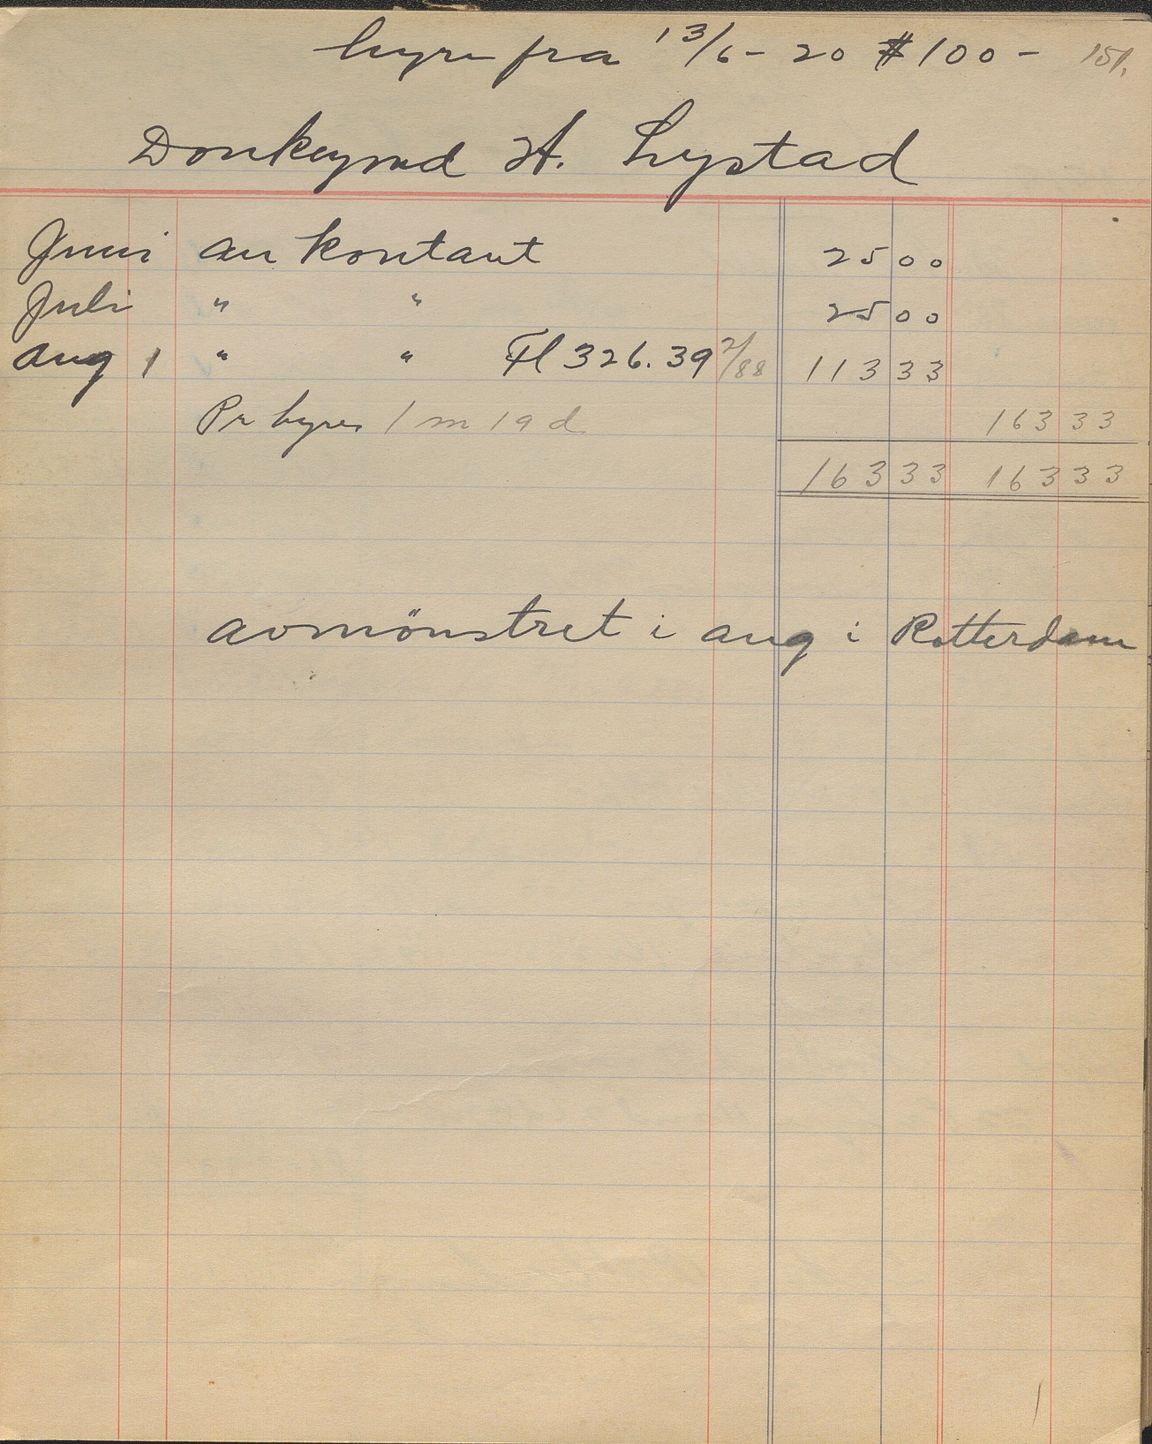 hyre fra 13/6 - 20 $100 - 151.
Donkeymd H. Lystad
Juni an kontant 25 00
Juli " " 25 00
aug 1 " " Fl 326.39 2/88 113 33
Pr hyre 1 m 19 d 163 33
163 33 163 33
avmönstret i aug i Rotterdam